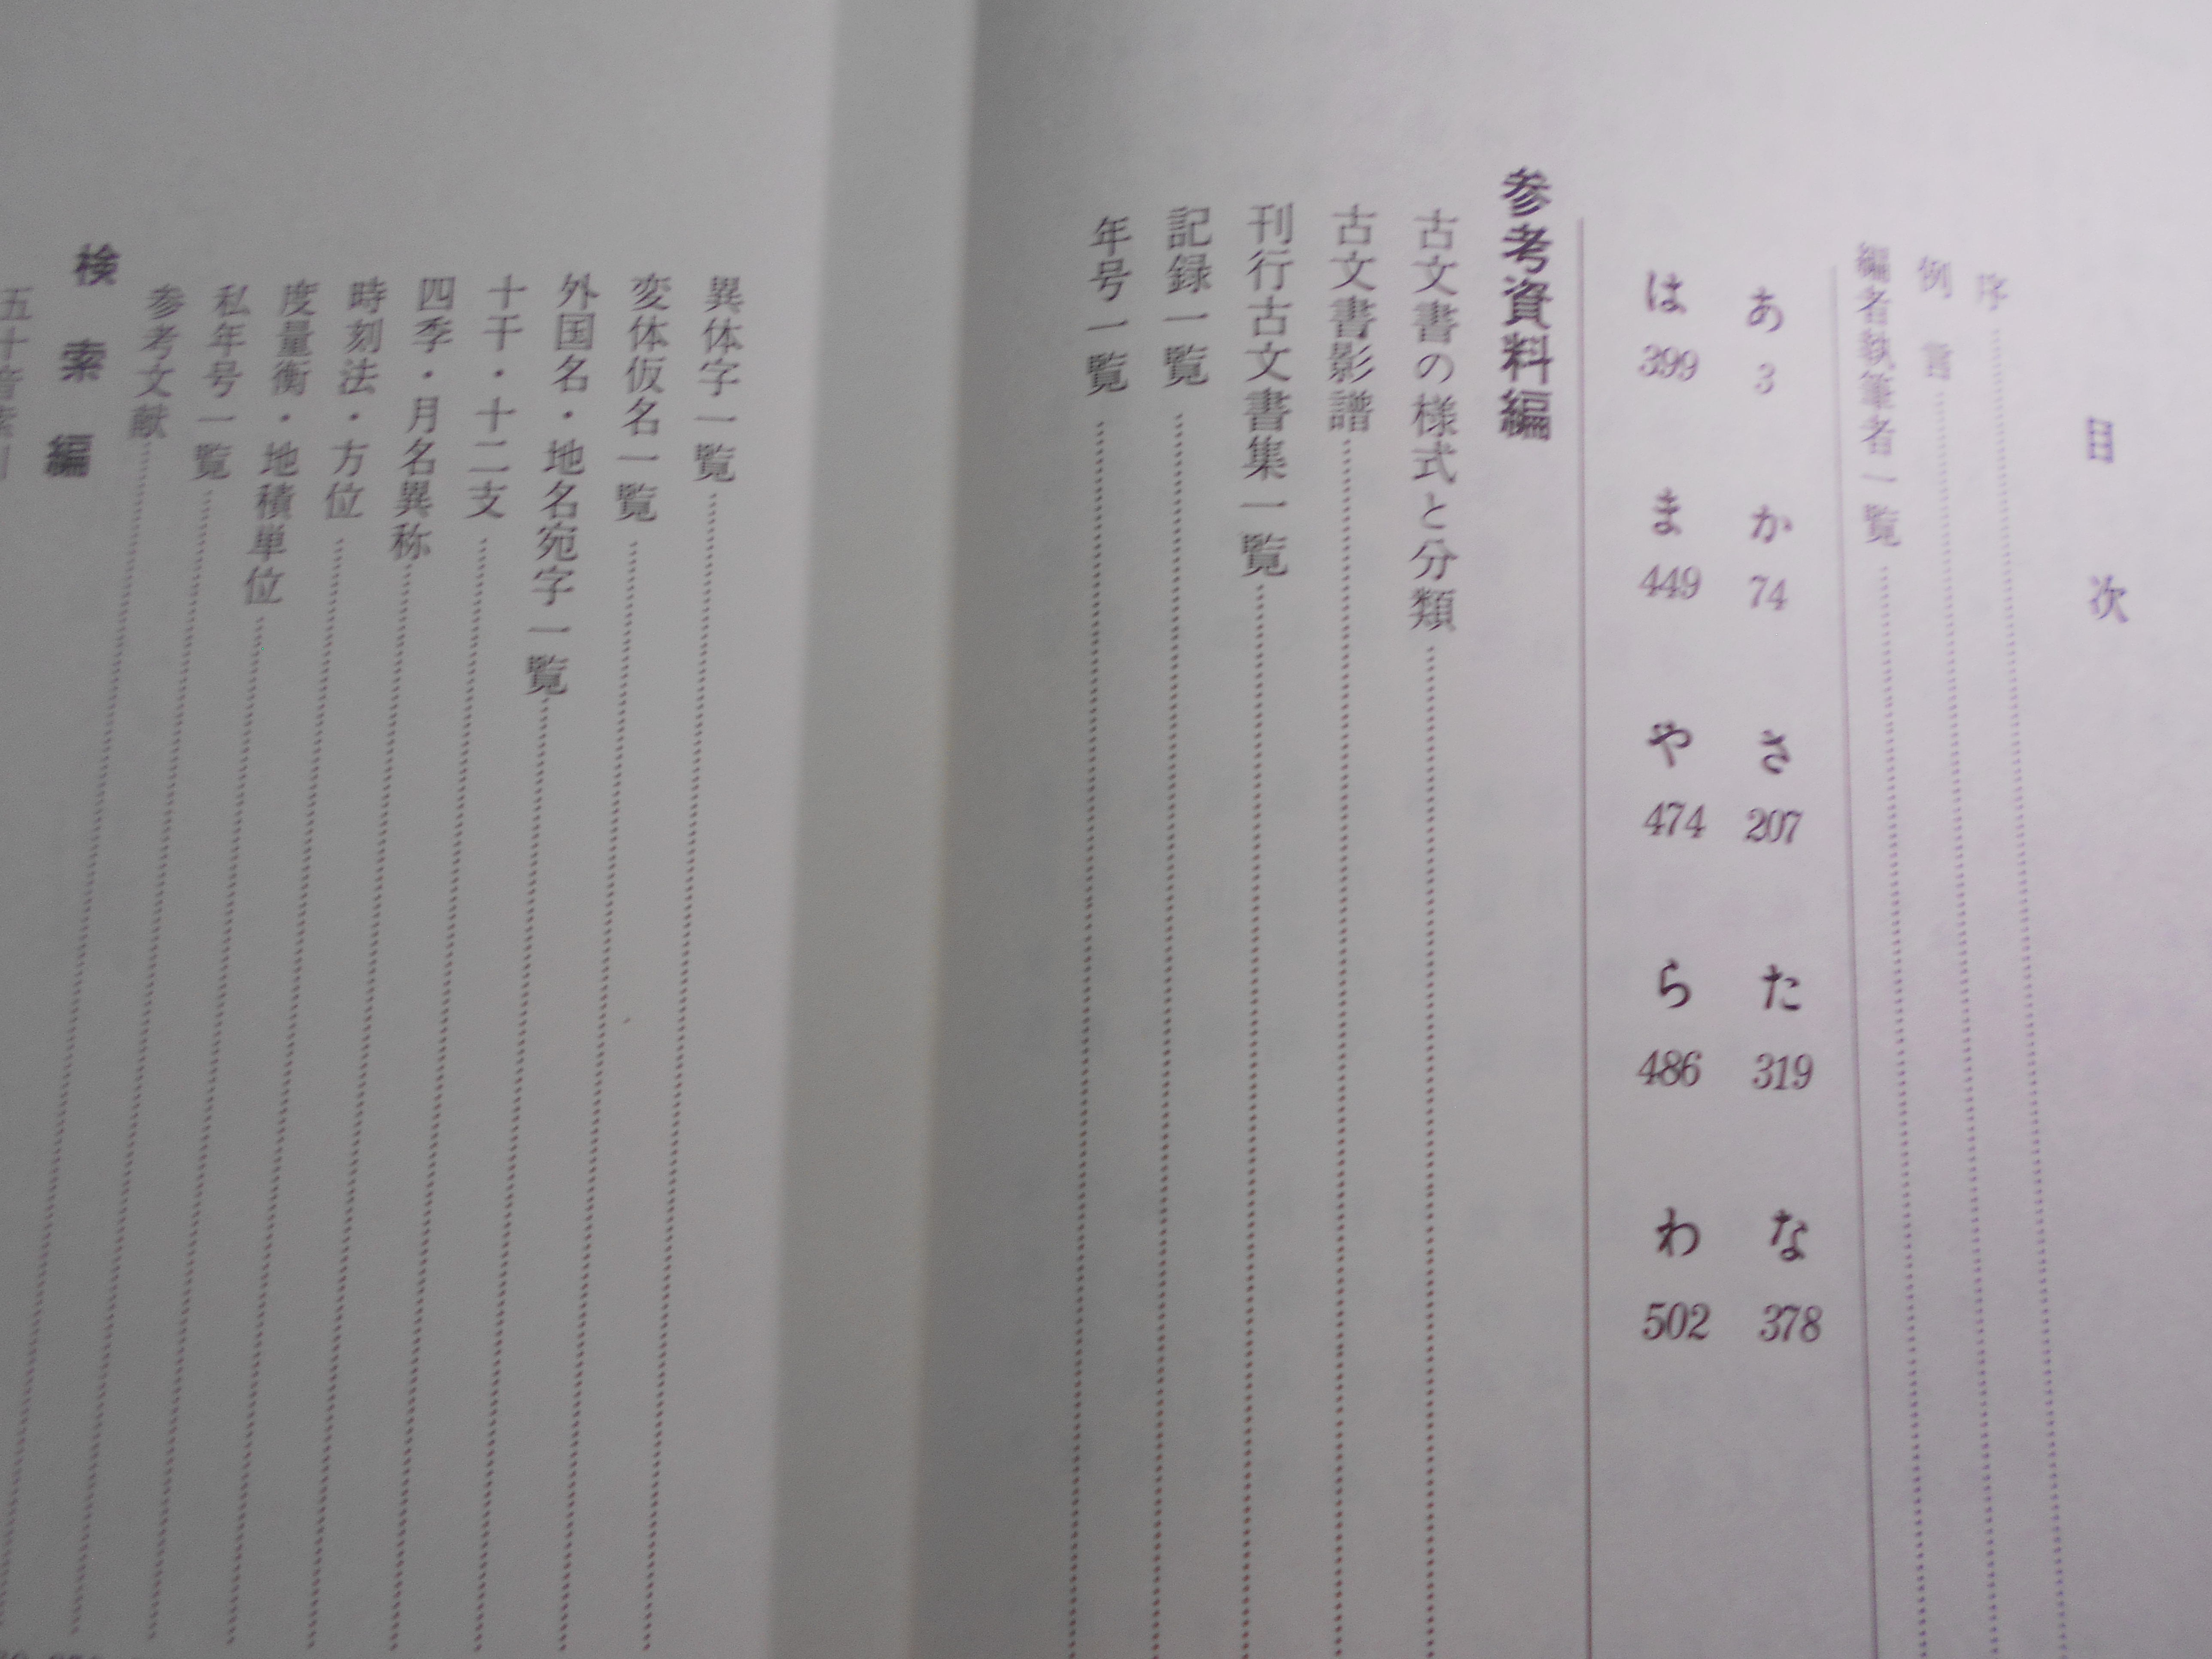 目次
序
例言
編者執筆者一覧
あ 3 か 74 さ 207 た 319 な 378
は 399 ま 449 や 474 ら 486 わ 502
参考資料編
古文書の様式と分類
古文書影譜
刊行古文書集一覧
記録一覧
年号一覧
異体字一覧
変体仮名一覧
外国名・地名宛字一覧
十干・十二支
四季・月名異称
時刻法・方位
度量衡・地積単位
私年号一覧
参考文献
検索編
五十音索